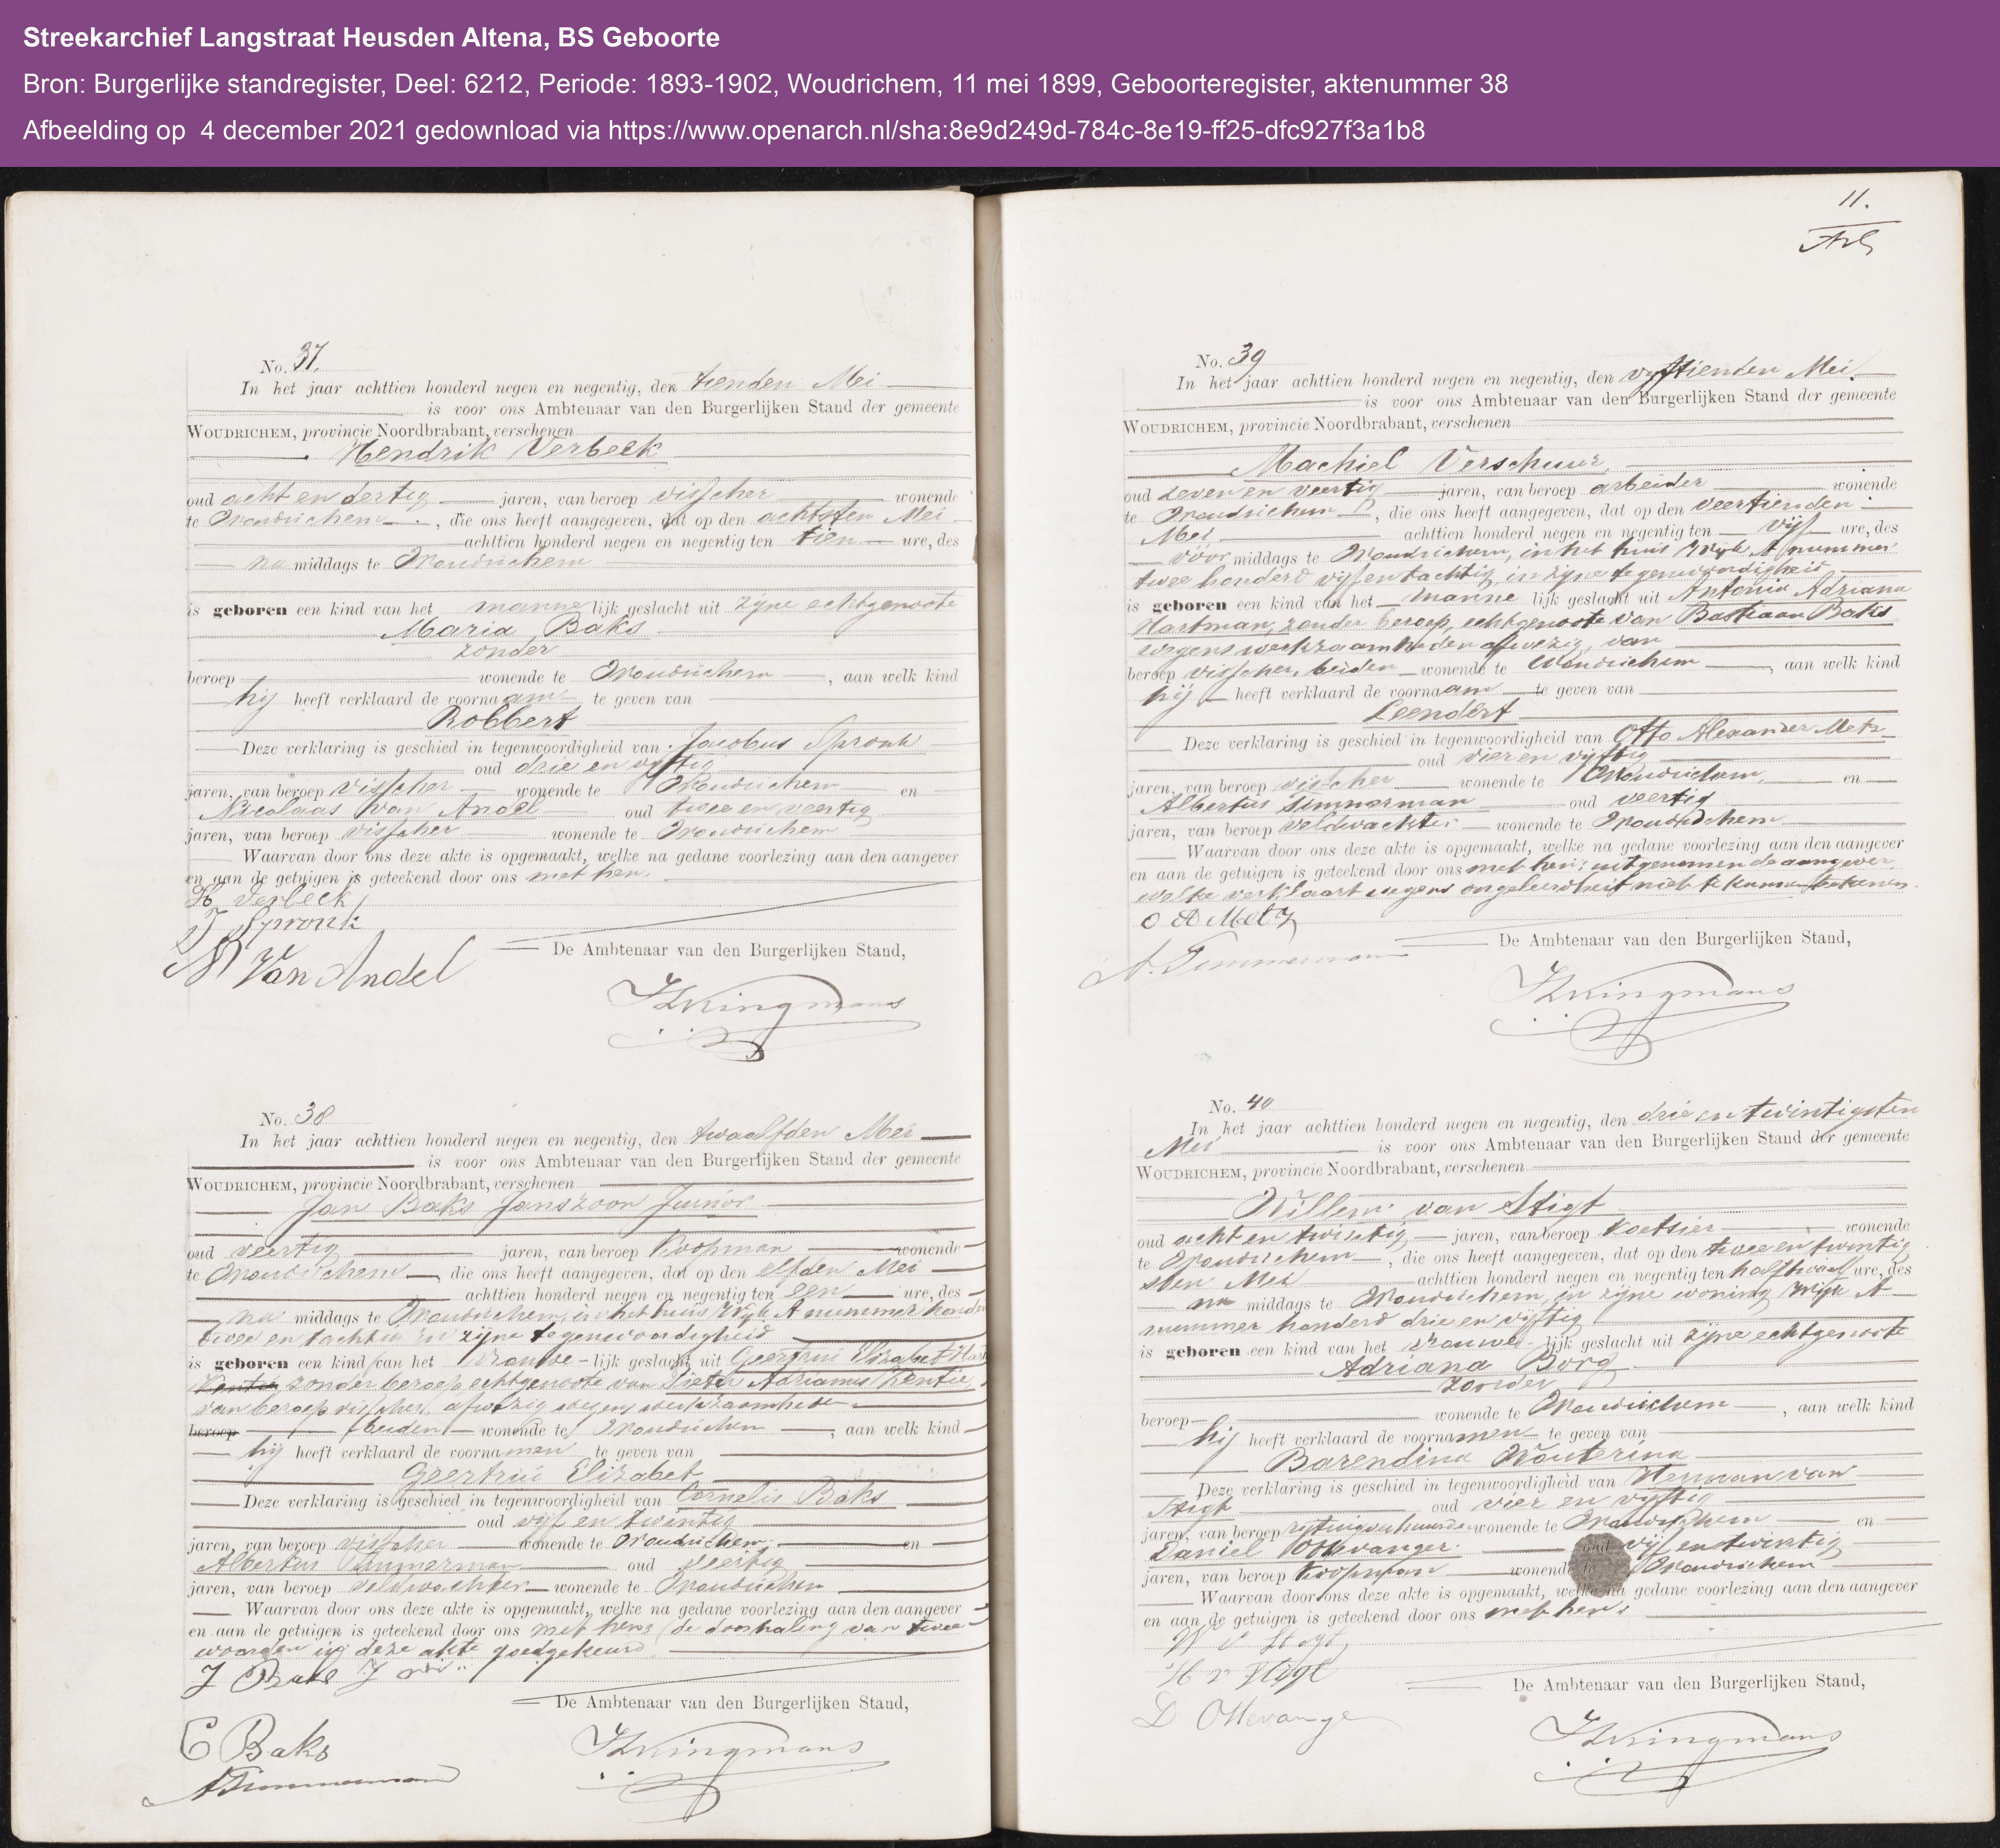 Streekarchief Langstraat Heusden Altena, BS Geboorte
Bron: Burgerlijke standregister, Deel: 6212, Periode: 1893-1902, Woudrichem, 11 mei 1899, Geboorteregister, aktenummer 38
Afbeelding op 4 december 2021 gedownload via https://www.openarch.nl/sha:8e9d249d-784c-8e19-ff25-dfc927f3a1b8
No. 37.
In het jaar achttien honderd negen en negentig, den tienden Mei
is voor ons Ambtenaar van den Burgerlijken Stand der gemeente
WOUDRICHEM, provincie Noordbrabant, verschenen
Hendrik Verbeek
oud acht en dertig jaren, van beroep visscher wonende
te Woudrichem, die ons heeft aangegeven, dat op den achtsten Mei
achttien honderd negen en negentig ten tien ure, des
na middags te Woudrichem
is geboren een kind van het mannelijk geslacht uit zijne echtgenoote
Maria Baks
zonder
beroep wonende te Woudrichem, aan welk kind
hij heeft verklaard de voornaam te geven van
Robbert
Deze verklaring is geschied in tegenwoordigheid van Jacobus Spronk
oud drie en vijftig
jaren, van beroep visscher wonende te Woudrichem en
Nicolaas van Andel oud twee en veertig
jaren, van beroep visscher wonende te Woudrichem
Waarvan door ons deze akte is opgemaakt, welke na gedane voorlezing aan den aangever
en aan de getuigen is geteekend door ons met hen.
H Verbeek
J Spronk
N Van Andel
De Ambtenaar van den Burgerlijken Stand,
Kingmans
No. 38
In het jaar achttien honderd negen en negentig, den twaalfden Mei
is voor ons Ambtenaar van den Burgerlijken Stand der gemeente
WOUDRICHEM, provincie Noordbrabant, verschenen
Jan Baks Janszoon Junior
oud veertig jaren, van beroep Koopman wonende
te Woudrichem, die ons heeft aangegeven, dat op den elfden Mei
achttien honderd negen en negentig ten een ure, des
na middags te Woudrichem, in het huis Wijk A nummer honderd
twee en tachtig in zijne tegenwoordigheid
is geboren een kind van het vrouwe-lijk geslacht uit Geertrui Elizabet
Kentie zonder beroep echtgenoote van Pieter Adrianus Kentie,
van beroep visscher, afwezig wegens werkzaamheden
beroep beiden wonende te Woudrichem, aan welk kind
hij heeft verklaard de voornamen te geven van
Geertrui Elizabet
Deze verklaring is geschied in tegenwoordigheid van Cornelis Baks
oud vijf en twintig
jaren, van beroep visscher wonende te Woudrichem en
Albertus Timmerman oud veertig
jaren, van beroep veldwachter wonende te Woudrichem
Waarvan door ons deze akte is opgemaakt, welke na gedane voorlezing aan den aangever
en aan de getuigen is geteekend door ons met hen; de doorhaling van twee
woorden in deze akte goedgekeurd
J Baks J
C Baks
A Timmerman
De Ambtenaar van den Burgerlijken Stand,
Kingmans
11.
No. 39
In het jaar achttien honderd negen en negentig, den vijftienden Mei
is voor ons Ambtenaar van den Burgerlijken Stand der gemeente
WOUDRICHEM, provincie Noordbrabant, verschenen
Machiel Verschuur
oud zeven en veertig jaren, van beroep arbeider wonende
te Woudrichem, die ons heeft aangegeven, dat op den veertienden
Mei achttien honderd negen en negentig ten vijf ure, des
voor middags te Woudrichem, in het huis Wijk A nummer
twee honderd vijf en tachtig in zijne tegenwoordigheid
is geboren een kind van het mannelijk geslacht uit Antonia Adriana
Hartman, zonder beroep, echtgenoote van Bastiaan Baks
wegens werkzaamheden afwezig, van
beroep visscher, beiden wonende te Woudrichem, aan welk kind
hij heeft verklaard de voornaam te geven van
Leendert
Deze verklaring is geschied in tegenwoordigheid van Otto Alexander Metz
oud vier en vijftig
jaren, van beroep visscher wonende te Woudrichem en
Albertus Timmerman oud veertig
jaren, van beroep veldwachter wonende te Woudrichem
Waarvan door ons deze akte is opgemaakt, welke na gedane voorlezing aan den aangever
en aan de getuigen is geteekend door ons met hen; uitgenomen de aangever
welke verklaart wegens ongeleerdheid niet te kunnen teekenen.
O A Metz
A. Timmerman
De Ambtenaar van den Burgerlijken Stand,
Kingmans
No. 40
In het jaar achttien honderd negen en negentig, den drie en twintigsten
Mei is voor ons Ambtenaar van den Burgerlijken Stand der gemeente
WOUDRICHEM, provincie Noordbrabant, verschenen
Willem van Stigt
oud acht en twintig jaren, van beroep koetsier wonende
te Woudrichem, die ons heeft aangegeven, dat op den twee en twintig
sten Mei achttien honderd negen en negentig ten half twaalf ure, des
na middags te Woudrichem, in zijne woning Wijk A
nummer honderd drie en vijftig
is geboren een kind van het vrouwe-lijk geslacht uit zijne echtgenoote
Adriana Borg
zonder
beroep wonende te Woudrichem, aan welk kind
hij heeft verklaard de voornamen te geven van
Barendina Wouterina
Deze verklaring is geschied in tegenwoordigheid van Herman van
Stigt oud vier en vijftig
jaren, van beroep rijtuigverhuurder wonende te Woudrichem en
Daniel Ottevanger oud vijf en twintig
jaren, van beroep koopman wonende te Woudrichem
Waarvan door ons deze akte is opgemaakt, welke na gedane voorlezing aan den aangever
en aan de getuigen is geteekend door ons met hen;
W v Stigt
H v Stigt
D Ottevanger
De Ambtenaar van den Burgerlijken Stand,
Kingmans